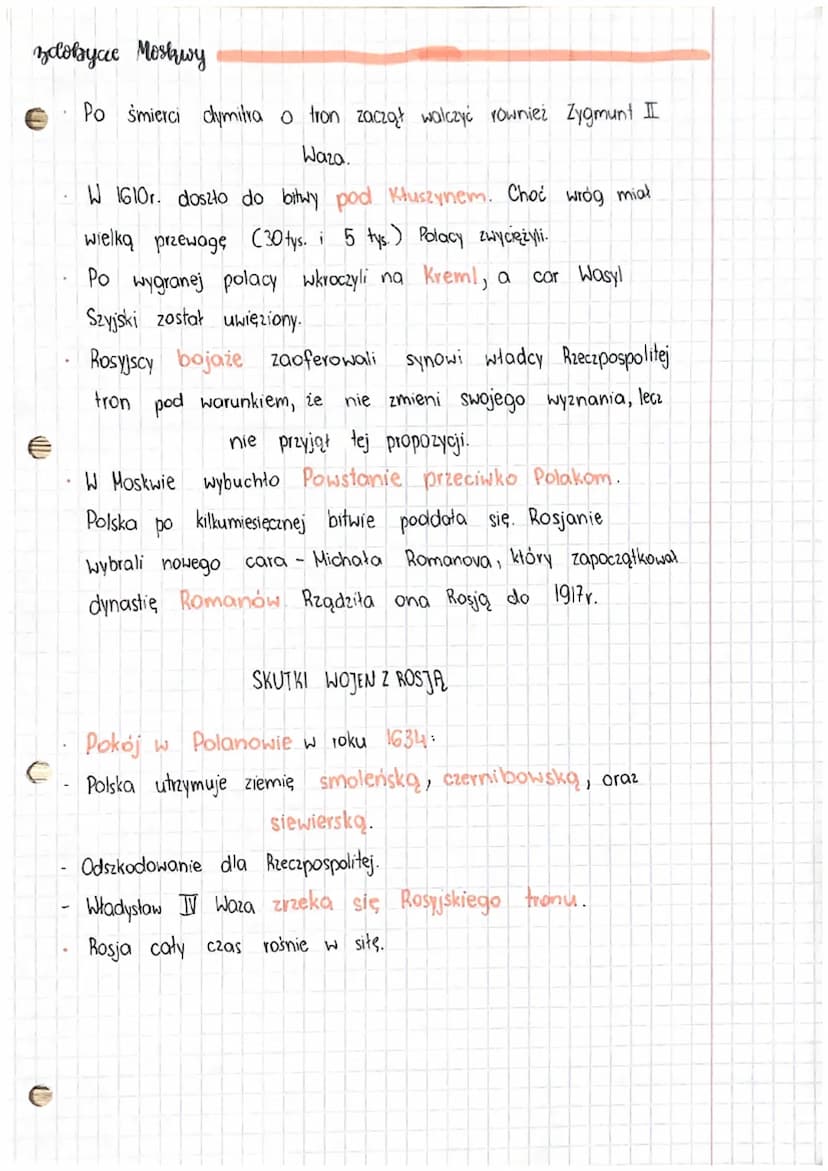 zdobycie Moskwy
· Po śmierci dymitra o tron zaczął walczyć również Zygmunt II
Waza.
· W 1610r. doszło do bitwy pod Kłuszynem. Choć wróg miał
wielką przewagę (30tys. i 5 tys.) Polacy zwyciężyli.
· Po wygranej polacy wkroczyli na Kreml, a car Wasyl
Szyjski został uwięziony.
· Rosyjscy bojaże zaoferowali synowi władcy Rzeczpospolitej
tron pod warunkiem, że nie zmieni swojego wyznania, lecz
nie przyjął tej propozycji.
· W Moskwie wybuchło Powstanie przeciwko Polakom.
Polska po kilkumiesięcznej bitwie poddała się. Rosjanie
wybrali nowego cara - Michała Romanova, który zapoczątkował
dynastię Romanów. Rządziła ona Rosją do 1917r.
SKUTKI WOJEN Z ROSJĄ
· Pokój w Polanowie w roku 1634:
- Polska utrzymuje ziemię smoleńską, czernibowską, oraz
siewierską.
- Odszkodowanie dla Rzeczpospolitej.
- Władysław IV Waza zrzeka się Rosyjskiego tronu.
· Rosja cały czas rośnie w siłę.